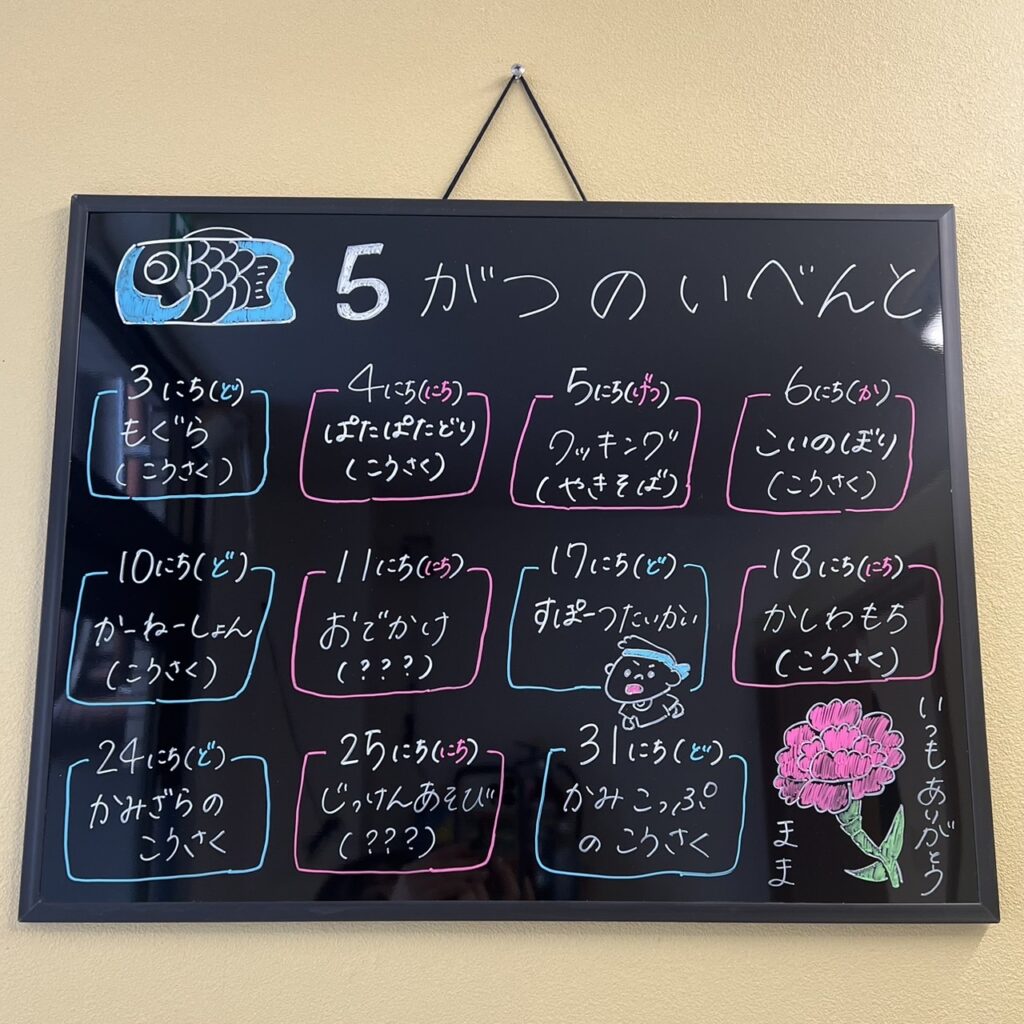 5がつのいべんと
3にち(ど)
もぐら
(こうさく)
4にち(にち)
ぱたぱたどり
(こうさく)
5にち(げつ)
クッキング
(やきそば)
6にち(か)
こいのぼり
(こうさく)
10にち(ど)
かーねーしょん
(こうさく)
11にち(にち)
おでかけ
(???)
17にち(ど)
すぽーつたいかい
18にち(にち)
かしわもち
(こうさく)
24にち(ど)
かみざらの
こうさく
25にち(にち)
じっけんあそび
(???)
31にち(ど)
かみこっぷ
のこうさく
いつもありがとう
まま